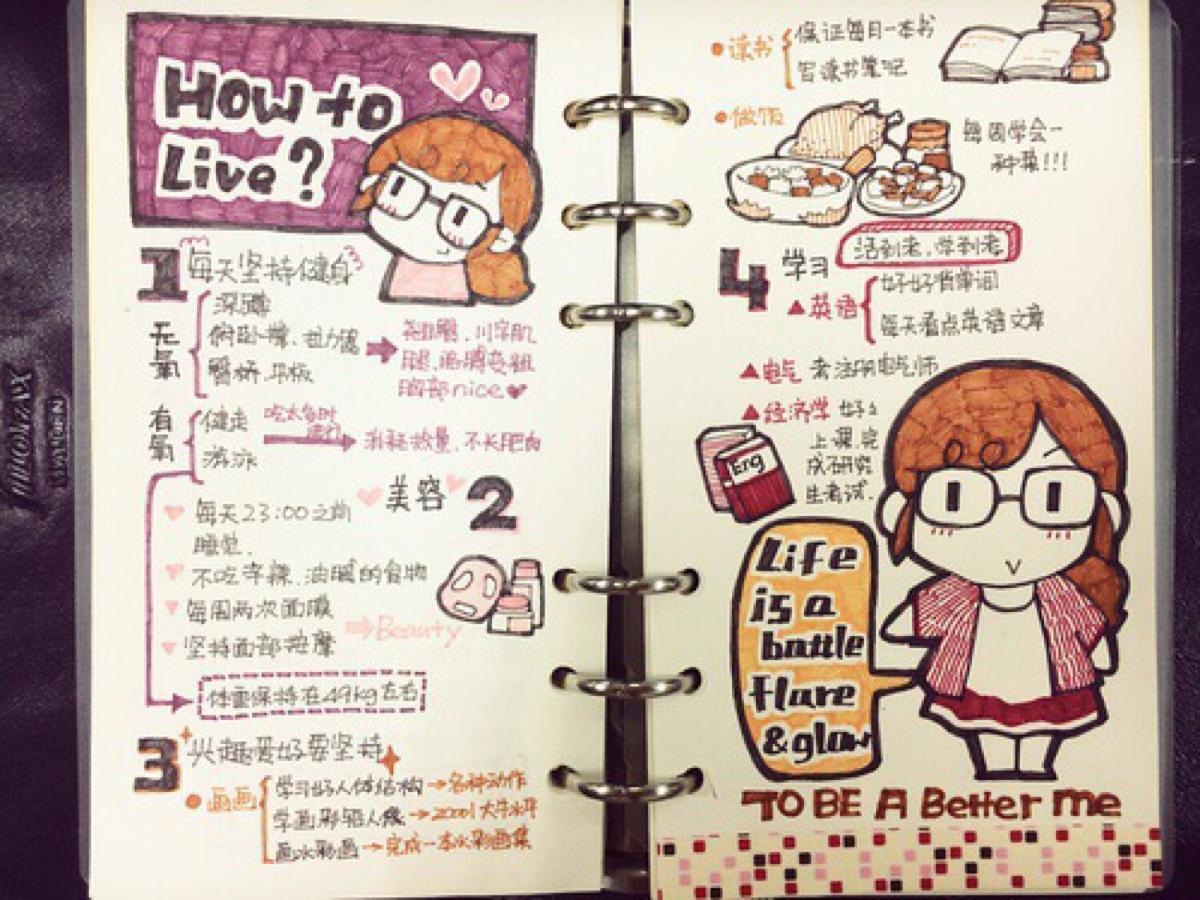 How to
Live?
1 每天坚持健身
无氧
深蹲
俯卧撑、拉力器
臀桥、平板
翘臀、川字肌
腿、胳膊变粗
胸部nice
有氧
健走
游泳
吃太多时
进行
消耗热量、不长肥肉
美容 2
每天23:00之前
睡觉.
不吃辛辣、油腻的食物
每周两次面膜
坚持面部按摩
Beauty
体重保持在49kg左右
3 兴趣爱好要坚持
画画
学习好人体结构→各种动作
学画彩铅人像→20001大牛水平
画水彩画→完成一本水彩画集
读书
保证每月一本书
写读书笔记
做饭
每周学会一
种菜!!!
4 学习
活到老,学到老
英语
好好背单词
每天看点英语文章
电气 考注册电气师
经济学 好好
上课,完
成研究
生考试.
Eng
Life
is a
battle
flare
& glow
TO BE A Better me